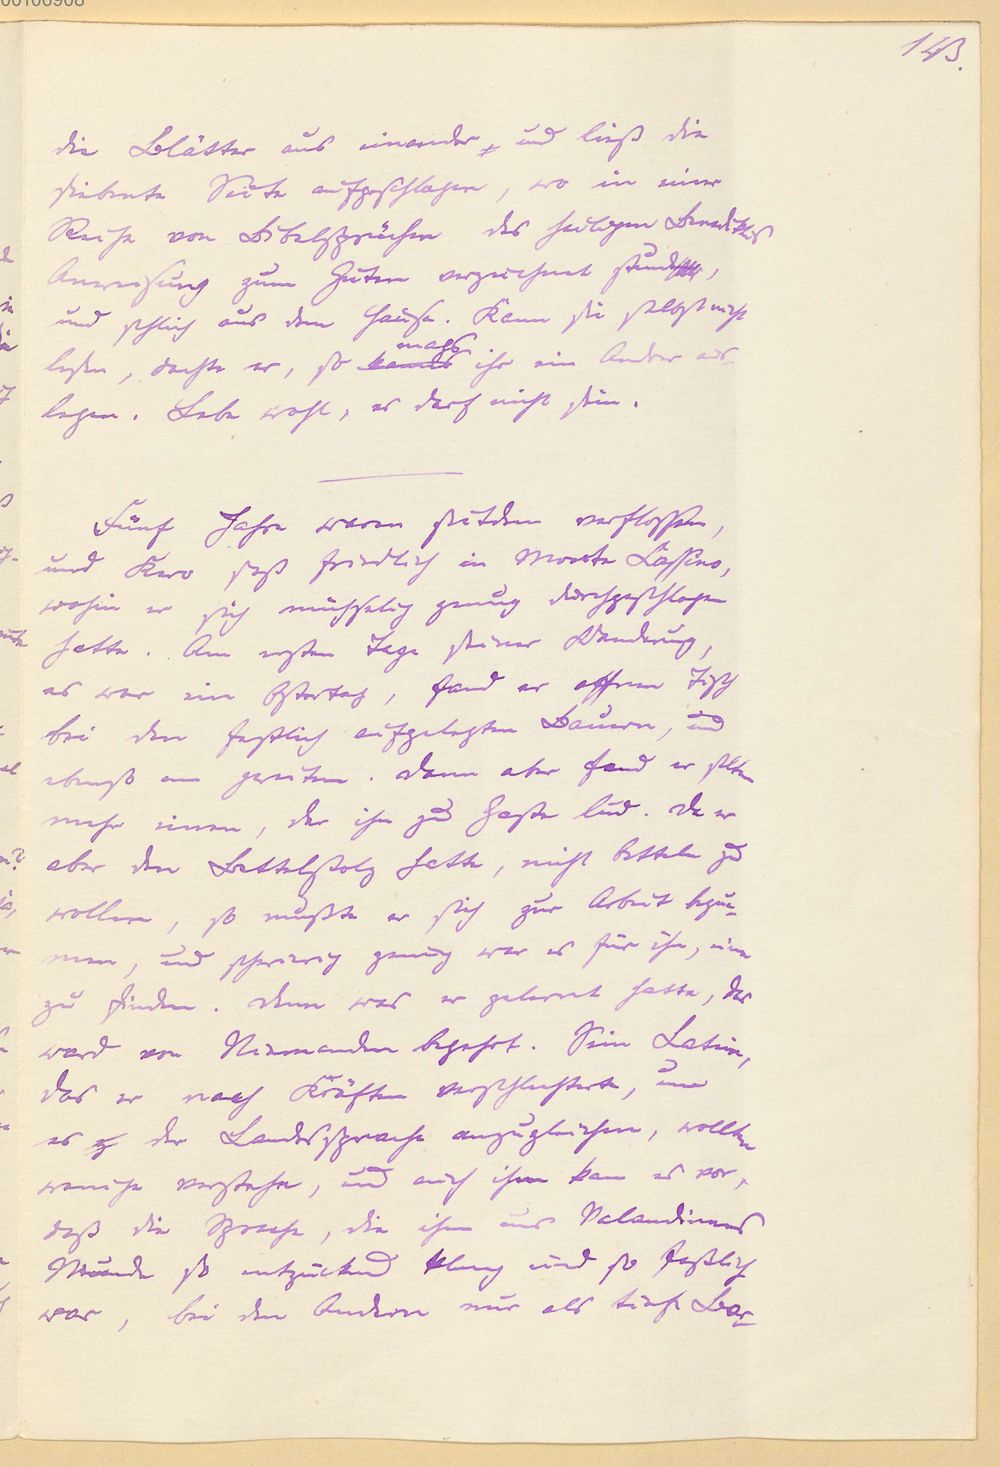 00106908
143.
die Blätter aus einander, und ließ die
siebente Seite aufgeschlagen, wo in einer
Reihe von Bibelsprüchen des heiligen Benediktus
Anweisung zum Guten verzeichnet stund,
und schlich aus dem Hause. Kann sie selbst nicht
lesen, dachte er, so mags ihr ein Andrer aus-
legen. Lebe wohl, es darf nicht sein.
Fünf Jahre waren seitdem verflossen,
und Kero saß friedlich in Monte Cassino,
wohin er sich mühselig genug durchgeschlagen
hatte. Am ersten Tage seiner Wanderung,
es war ein Ostertag, fand er offnen Tisch
bei den festlich aufgelegten Bauern, und
ebenso am zweiten. Dann aber fand er selten
mehr einen, der ihn zu Gaste lud. Da er
aber den Bettelstolz hatte, nicht betteln zu
wollen, so mußte er sich zur Arbeit beque-
men, und schwierig genug war es für ihn, eine
zu finden. Denn was er gelernt hatte, das
ward von Niemanden begehrt. Sein Latein,
das er nach Kräften verschlechterte, um
es der Landessprache anzugleichen, wollten
wenige verstehn, und auch ihm kam es vor,
daß die Sprache, die ihm aus Valandinens
Munde so entzückend klang und so faßlich
war, bei den Andern nur als tiefe Bar-